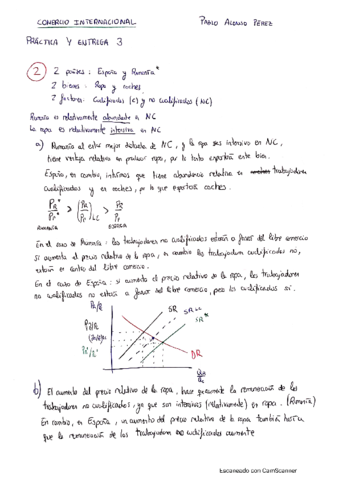 COMERCIO INTERNACIONAL
PABLO ALONSO PÉREZ
PRÁCTICA Y ENTREGA 3
2 2 países: España y Rumanía*
2 bienes: Ropa y coches
2 factores: Cualificados (C) y no cualificados (NC)
Rumanía es relativamente abundante en NC
La ropa es relativamente intensiva en NC
a) Rumanía al estar mejor dotada de NC, y la ropa ser intensiva en NC,
tiene ventaja relativa en producir ropa, por lo tanto exportará este bien.
España, en cambio, intuimos que tiene abundancia relativa en trabajadores
cualificados y en coches, por lo que exportará coches.
En el caso de Rumanía: los trabajadores no cualificados estarán a favor del libre comercio
si aumenta el precio relativo de la ropa, en cambio los trabajadores cualificados no,
estarán en contra del libre comercio.
En el caso de España: si aumenta el precio relativo de la ropa, los trabajadores
no cualificados no estarán a favor del libre comercio, pero los cualificados sí.
SR
SR LC
SR*
DR
b) El aumento del precio relativo de la ropa, hace que aumente la remuneración de los
trabajadores no cualificados, ya que son intensivos (relativamente) en ropa. (Rumanía)
En cambio, en España, un aumento del precio relativo de la ropa también hará
que la remuneración de los trabajadores no cualificados aumente
Escaneado con CamScanner